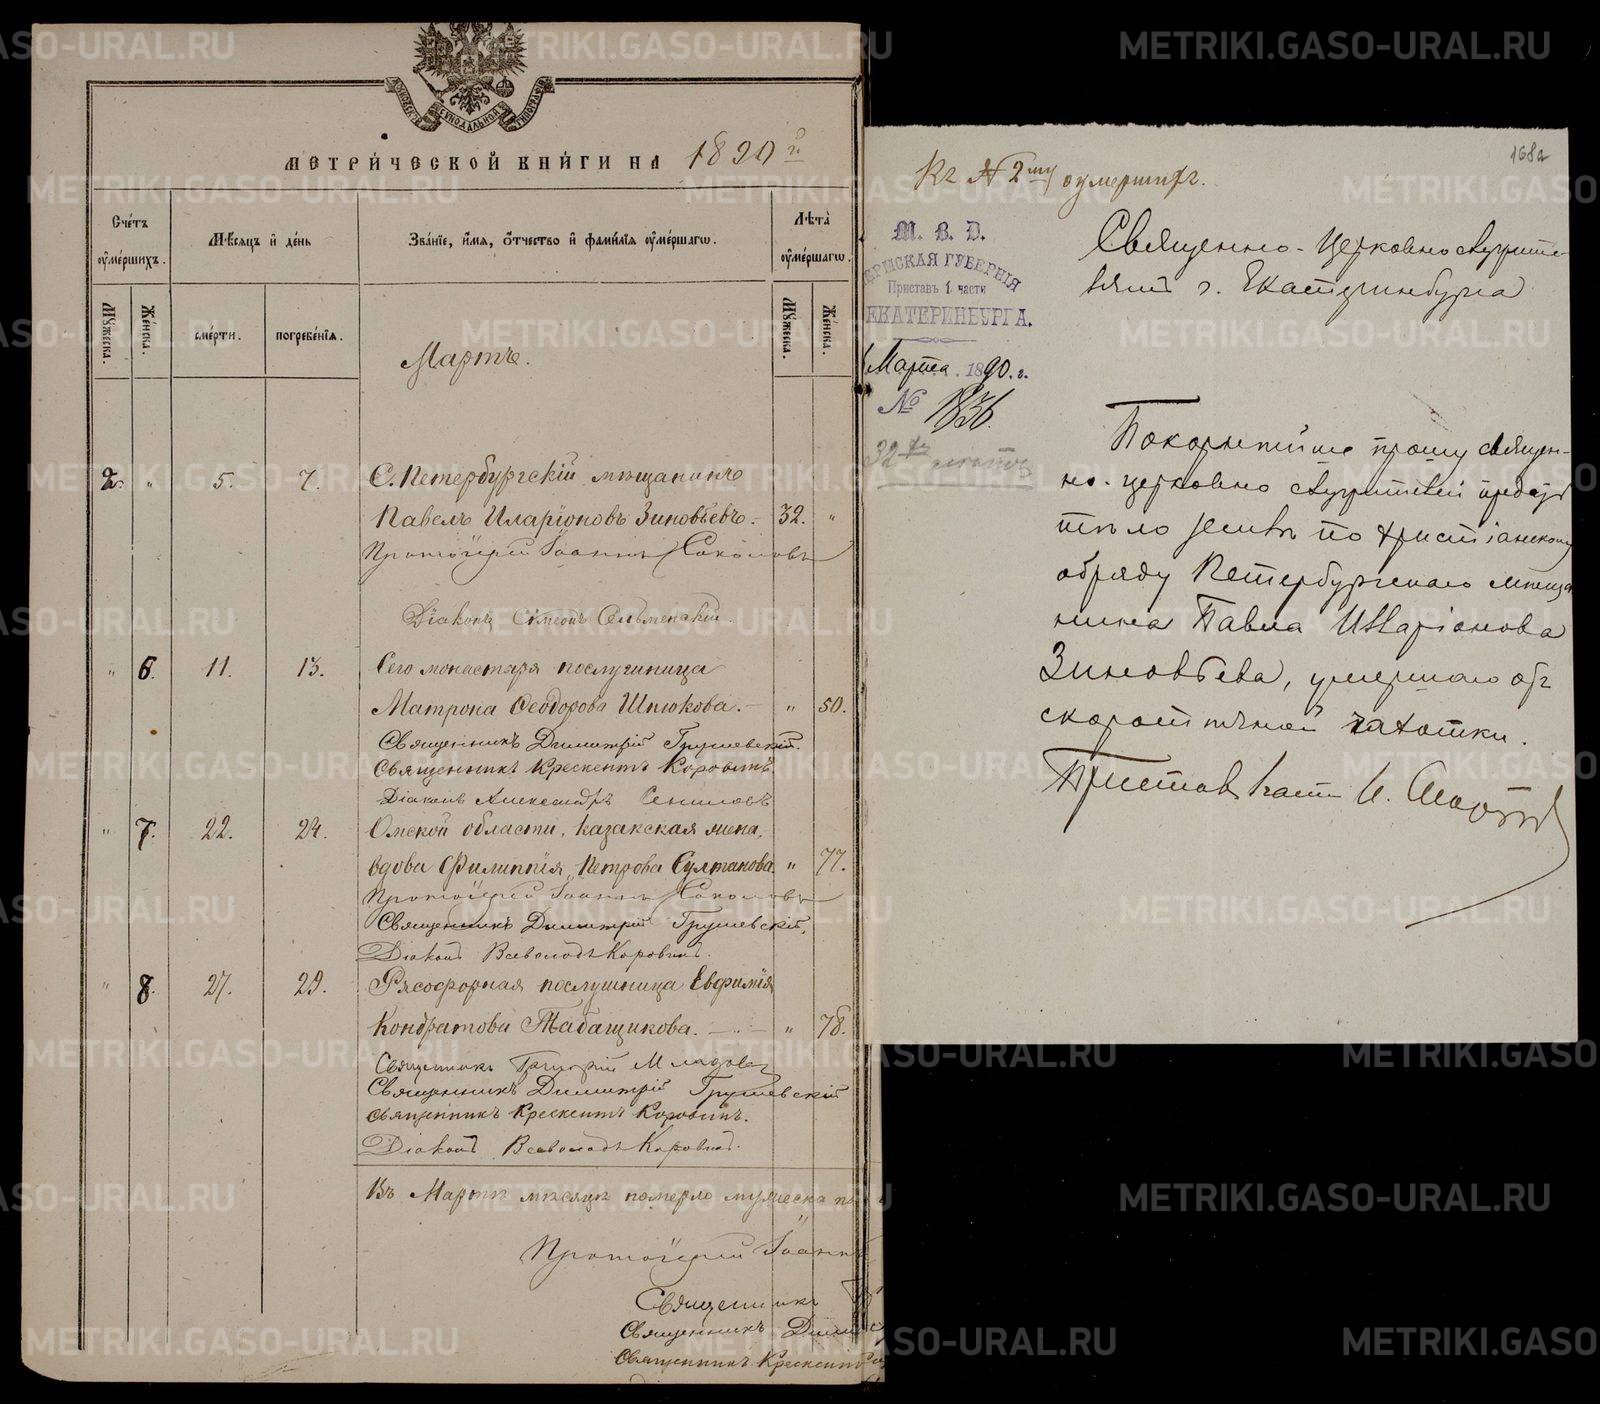 МОСКОВСК. СѴНОДАЛЬНОЙ ТИПОГРАФІИ
МЕТРИ́ЧЕСКОЙ КНИ́ГИ НА 1890 й
Сче́тъ ᲂу҆ме́ршихъ.
Мѣ́сяцъ и де́нь
Зва́нїе, и҆́мя, ѻ҆́тчество и҆ фамѝлїя ᲂу҆ме́ршагѡ.
Лѣта̀ ᲂу҆ме́ршагѡ.
Мꙋ́жеска.
Же́нска.
сме́рти.
погребе́нїя.
Мꙋ́жеска.
Же́нска.
Мартъ.
2. " 5. 7. С. Петербургскій мѣщанинъ
Павелъ Иларіоновъ Зиновьевъ. 32. "
Протоіерей Іоаннъ Соколовъ
Діаконъ Симеонъ Сельменскій.
" 6. 11. 13. Сего монастыря послушница
Матрона Ѳеодорова Шпюкова. " 50.
Священникъ Димитрій Грушевскій.
Священникъ Крескентъ Коровинъ.
Діаконъ Александръ
" 7. 22. 24. Омской области, казакская жена,
вдова Филиппія Петрова Султанова. " 77.
Протоіерей Іоаннъ Соколовъ
Священникъ Димитрій Грушевскій.
Діаконъ Всеволодъ Коровинъ.
" 8. 27. 29. Рясофорная послушница Евфимія
Кондратова Табащикова. " 78.
Священникъ Григорій Младовъ
Священникъ Димитрій Грушевскій
Священникъ Крескентъ Коровинъ.
Діаконъ Всеволодъ Коровинъ.
Въ Мартѣ мѣсяцѣ померло мужеска по
Протоіерей Іоаннъ
Священникъ
Священникъ Дими
Священникъ Крескентъ
168а
Къ № 2му умерших.
М. В. Д.
ПЕРМСКАЯ ГУБЕРНІЯ
Приставъ 1. части
ЕКАТЕРИНБУРГА.
Марта 1890. г.
№ 1836.
32
Священно-церковнослужите-
лямъ г. Екатеринбурга
Покорнѣйше прошу священ-
но-церковно служителей предать
тѣло землѣ по христіанскому
обряду Петербургскаго мѣща
нина Павла Илларіонова
Зиновьева, умершаго отъ
скоротечной чахотки.
Пристав 1 части И.
METRIKI.GASO-URAL.RU